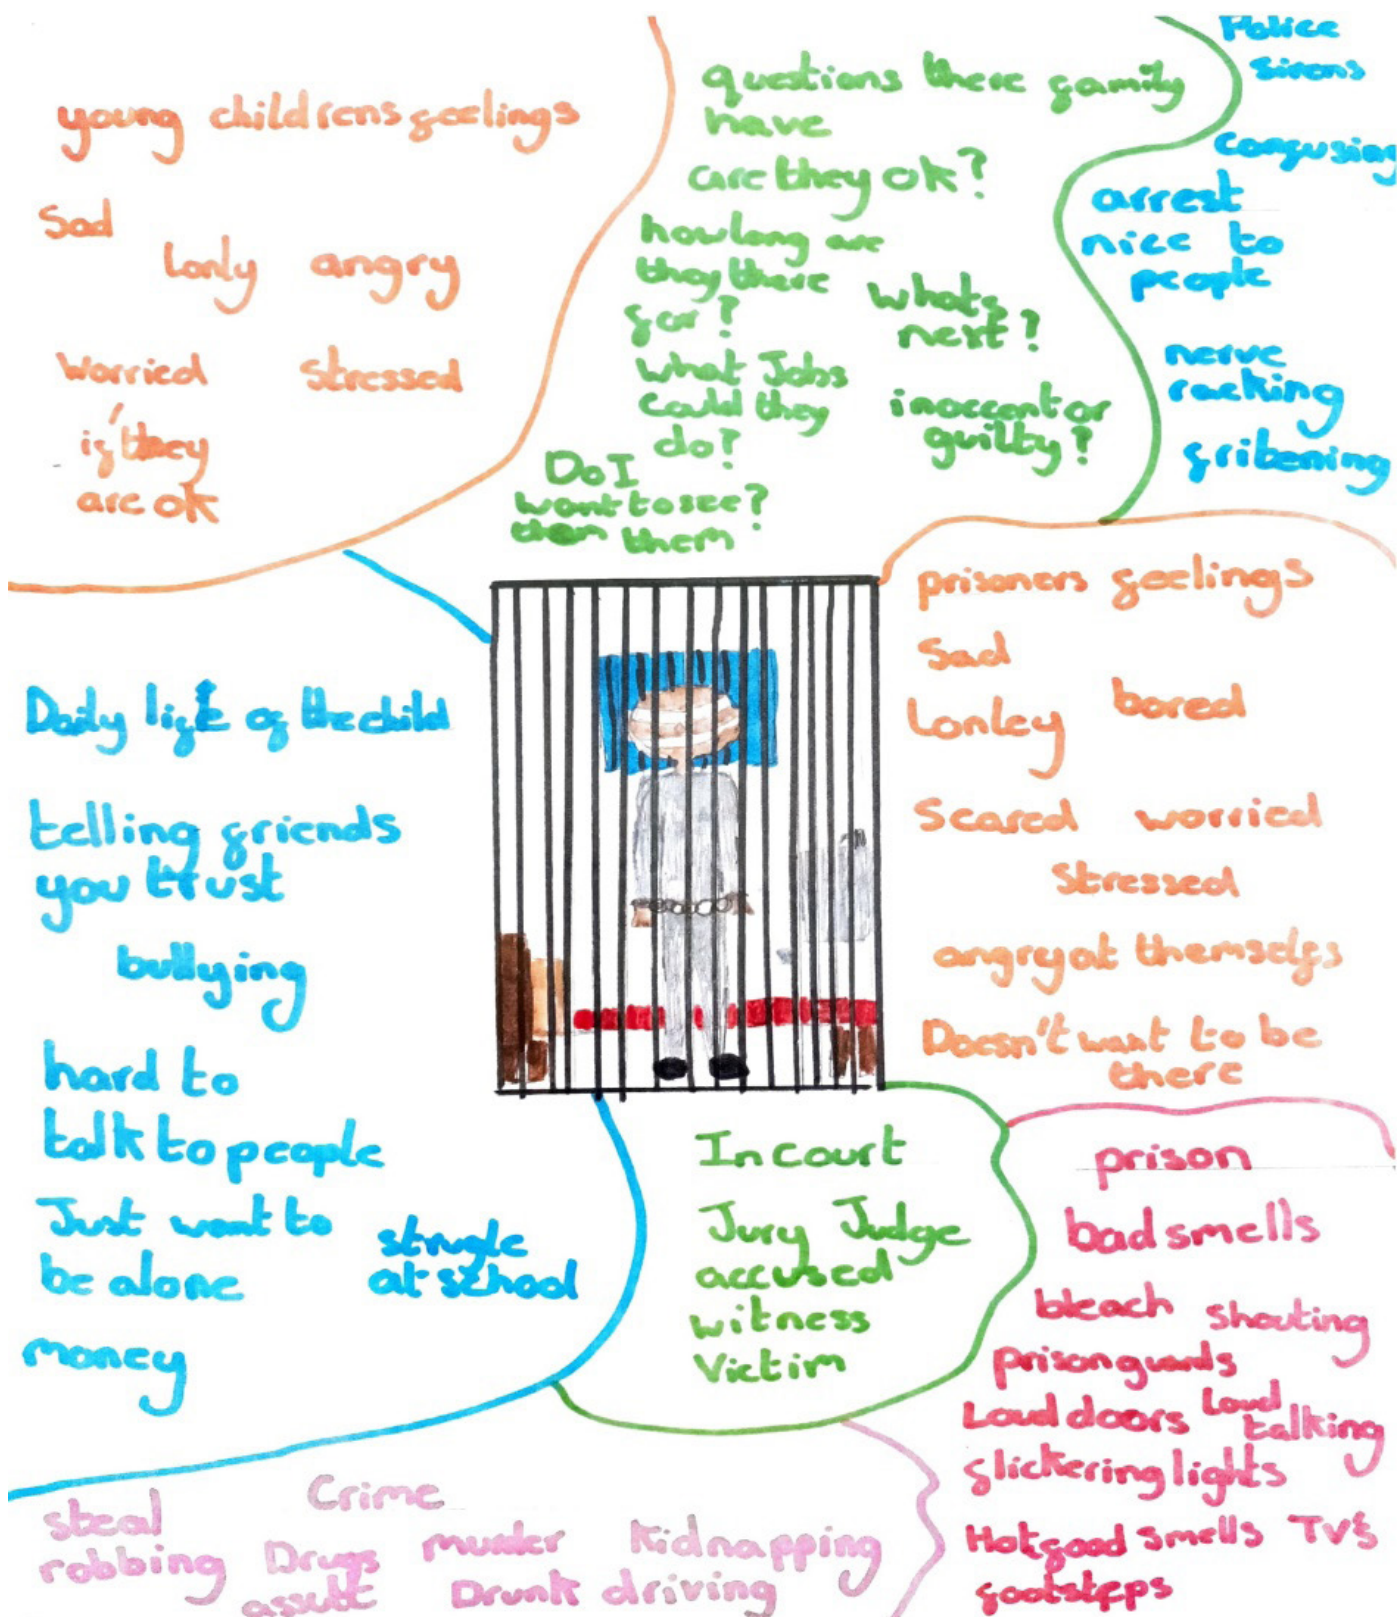 young childrens feelings
Sad
lonly angry
worried stressed
if they
are ok
questions there family
have
are they ok?
how long are
they there
for?
whats
next?
what Jobs
could they
do?
inoccent or
guilty?
Do I
want to see?
them them
Police
sirens
confusing
arrest
nice to
people
nerve
racking
fritening
prisoners feelings
Sad
Lonley bored
Scared worried
stressed
angry at themselfs
Doesn't want to be
there
Daily life of the child
telling friends
you trust
bullying
hard to
talk to people
Just want to
be alone
strugle
at school
money
In court
Jury Judge
accused
witness
Victim
prison
bad smells
bleach shouting
prison guards
Loud doors Loud
talking
flickering lights
Hot food smells TVs
footsteps
Crime
steal
robbing Drugs murder Kidnapping
assult Drunk driving